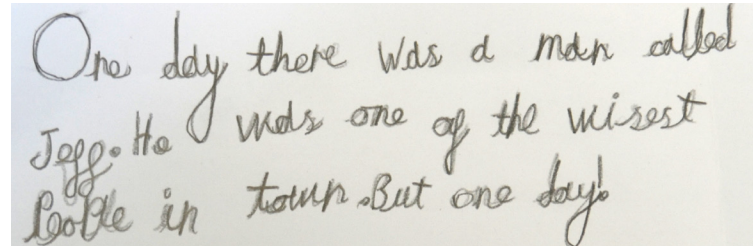 One day there was a man called
Jeff. He was one of the wisest
in town. But one day!